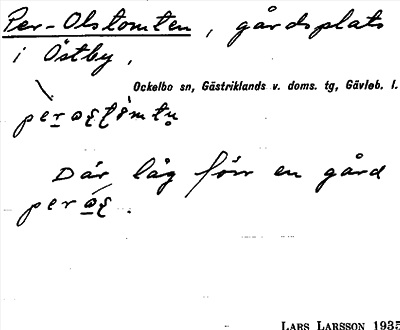 Per-Olstomten, gårdsplats
i Östby.
Ockelbo sn, Gästriklands v. doms. tg, Gävleb. l.
Där låg förr en gård
LARS LARSSON 1935